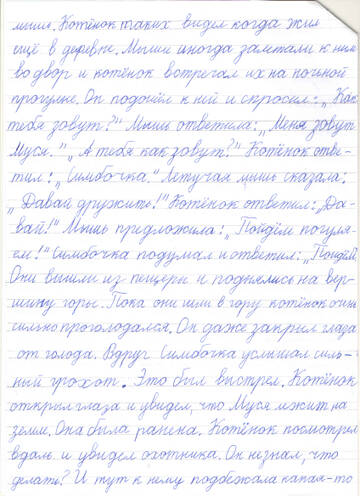 мышь. Котёнок таких видел когда жил
ещё в деревне. Мыши иногда залетали к ним
во двор и котёнок встречал их на ночной
прогулке. Он подошёл к ней и спросил: „Как
тебя зовут?" Мышь ответила: „Меня зовут
Муся." „А тебя как зовут?" Котёнок отве-
тил: „Симбочка." Летучая мышь сказала:
„Давай дружить!" Котёнок ответил: „Да-
вай!" Мышь предложила: „Пойдём погуля-
ем!" Симбочка подумал и ответил: „Пойдём.
Они вышли из пещеры и поднялись на вер-
шину горы. Пока они шли в гору котёнок очень
сильно проголодался. Он даже закрыл глаза
от голода. Вдруг Симбочка услышал силь-
ный грохот. Это был выстрел. Котёнок
открыл глаза и увидел, что Муся лежит на
земле. Она была ранена. Котёнок посмотрел
вдаль и увидел охотника. Он не знал, что
делать? И тут к нему подбежала какая-то